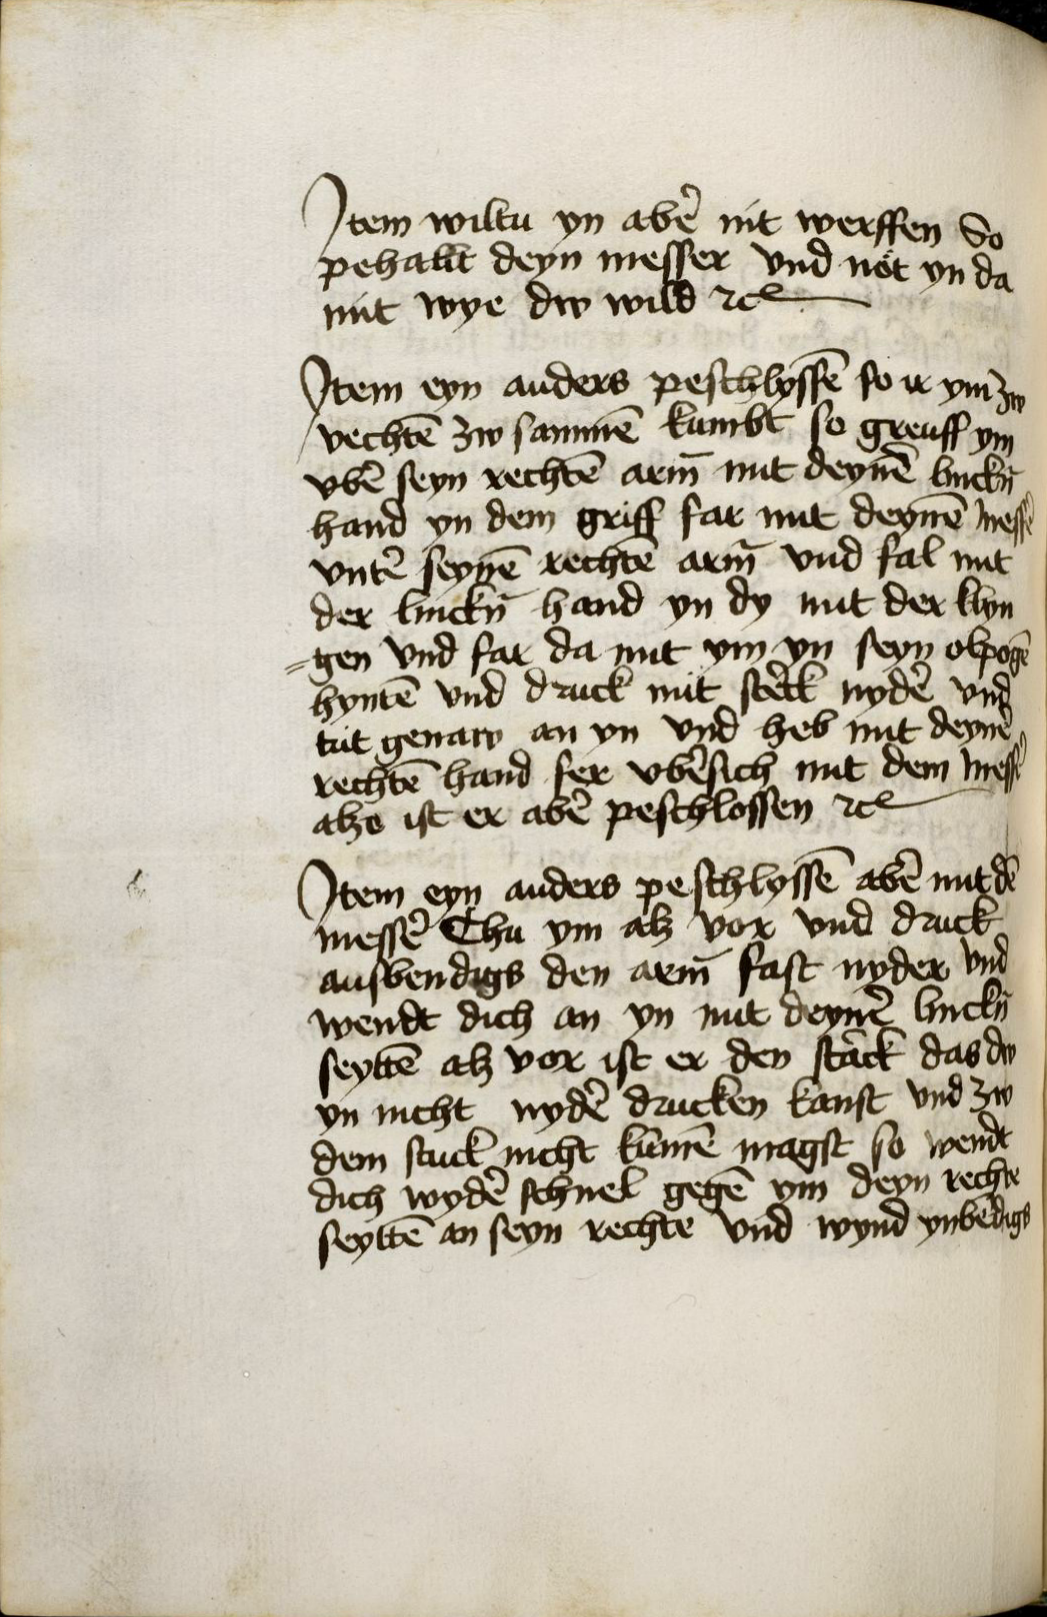 Jtem wiltu yn abe᷑ nit werffen So
pehallt deyn messer vnd nöt yn da
mit wye dw wild ⁊cꝭ
Jtem eyn anders peschlyssē so ir ym zw
vechtē zw sammē kumbt so greuff ym
vbe᷑ seyn rechtē arm̄ mit deyne᷑ linckn̄
hand yn dem griff far mit deynē messe᷑
vnte᷑ seynē rechtē arm̄ vnd fal mit
der linckn̄ hand yn dy mit der klyn
=gen vnd far da mit ym yn seyn elpogē
hyntē vnd druck mit ste᷑ck nyde᷑ vnd
trit genaw an yn vnd heb mit deyne᷑
rechtē hand ser vbe᷑sich mit dem messe᷑
alzo ist er abe᷑ peschlossen ⁊cꝭ
Jtem eyn anders peschlyssē abe᷑ mit dē
messe᷑ Thu ym alz vor vnd druck
auswendigs den arm̄ fast nyder vnd
wendt dich an yn mit deyne᷑ linckn̄
seyttē alz vor ist er den sta᷑ck das dw
yn nicht nyde᷑ drucken kanst vnd zw
dem stuck nicht kūmē magst so wendt
dich wyde᷑ schnel gegē ym deyn rechte
seyttē an seyn rechte vnd wynd ynbēdigs